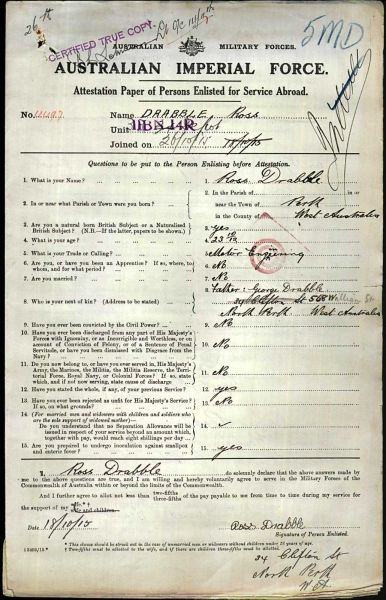 26th
CERTIFIED TRUE COPY
5MD
AUSTRALIAN MILITARY FORCES.
AUSTRALIAN IMPERIAL FORCE.
Attestation Paper of Persons Enlisted for Service Abroad.
No. Name DRABBLE Ross
Unit
Joined on 18/10/15
Questions to be put to the Person Enlisting before Attestation.
1. What is your Name? 1. Ross Drabble
2. In or near what Parish or Town were you born? 2. In the Parish of in or
near the Town of Perth
in the County of West Australia
3. Are you a natural born British Subject or a Naturalised
British Subject? (N.B.—If the latter, papers to be shown). 3. yes
4. What is your age? 4. 23
5. What is your Trade or Calling? 5. Motor
6. Are you, or have you been an Apprentice? If so, where, to
whom, and for what period? 6. No
7. Are you married? 7. No
8. Who is your next of kin? (Address to be stated) 8. Father: George Drabble
34 Clifton St
North Perth West Australia
9. Have you ever been convicted by the Civil Power? 9. No
10. Have you ever been discharged from any part of His Majesty's
Forces with Ignominy, or as Incorrigible and Worthless, or on
account of Conviction of Felony, or of a Sentence of Penal
Servitude, or have you been dismissed with Disgrace from the
Navy? 10. No
11. Do you now belong to, or have you ever served in, His Majesty's
Army, the Marines, the Militia, the Militia Reserve, the Terri-
torial Force, Royal Navy, or Colonial Forces? If so, state
which, and if not now serving, state cause of discharge 11. No
12. Have you stated the whole, if any, of your previous Service? 12. yes
13. Have you ever been rejected as unfit for His Majesty's Service?
If so, on what grounds? 13. No
14. (For married men and widowers with children and soldiers who
are the sole support of widowed mother)—
Do you understand that no Separation Allowance will be
issued in respect of your service beyond an amount which,
together with pay, would reach eight shillings per day 14. ✓
15. Are you prepared to undergo inoculation against smallpox
and enteric fever? 15. yes
I, Ross Drabble do solemnly declare that the above answers made by
me to the above questions are true, and I am willing and hereby voluntarily agree to serve in the Military Forces of the
Commonwealth of Australia within or beyond the limits of the Commonwealth.
And I further agree to allot not less than two-fifths three-fifths of the pay payable to me from time to time during my service for
the support of my wife wife and children.
Date 18/10/15 Ross Drabble
Signature of Person Enlisted.
34 Clifton St
North Perth
W.A.
* This clause should be struck out in the case of unmarried men or widowers without children under 18 years of age.
† Two-fifths must be allotted to the wife, and if there are children three-fifths must be allotted.